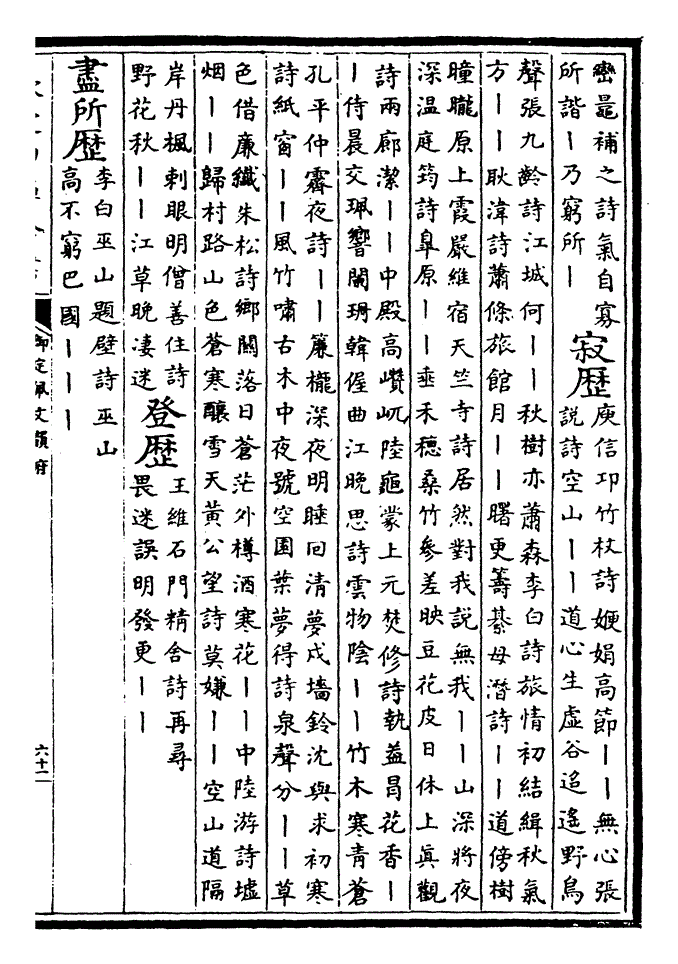 巒曧補之詩氣自寡
所諧丨乃窮所丨
寂歴
庾信邛竹杖詩㛹娟高節丨丨無心張
說詩空山丨丨道心生虛谷迢遙野鳥
聲張九齡詩江城何丨丨秋樹亦蕭森李白詩旅情初結緝秋氣
方丨丨耿湋詩蕭條旅館月丨丨曙更籌綦母潛詩丨丨道傍樹
曈曨原上霞嚴維宿天竺寺詩居然對我說無我丨丨山深將夜
深温庭筠詩皐原丨丨垂禾穗桑竹參差映豆花皮日休上眞觀
詩兩廊潔丨丨中殿高巑岏陸龜蒙上元焚修詩執葢冒花香丨
丨侍晨交珮響闌珊韓偓曲江晚思詩雲物陰丨丨竹木寒青蒼
孔平仲霽夜詩丨丨簾櫳深夜明睡回清夢戍墻鈴沈與求初寒
詩紙窗丨丨風竹嘯古木中夜號空園葉夢得詩泉聲分丨丨草
色借廉纖朱松詩鄉關落日蒼茫外樽酒寒花丨丨中陸游詩墟
烟丨丨歸村路山色蒼寒釀雪天黃公望詩莫嫌丨丨空山道隔
岸丹楓刺眼明僧善住詩
野花秋丨丨江草晚凄迷
登歴
王維石門精舍詩再尋
畏迷誤明發更丨丨
盡所歴
李白巫山題壁詩巫山
高不窮巴國丨丨丨
御定佩文韻府
六十二